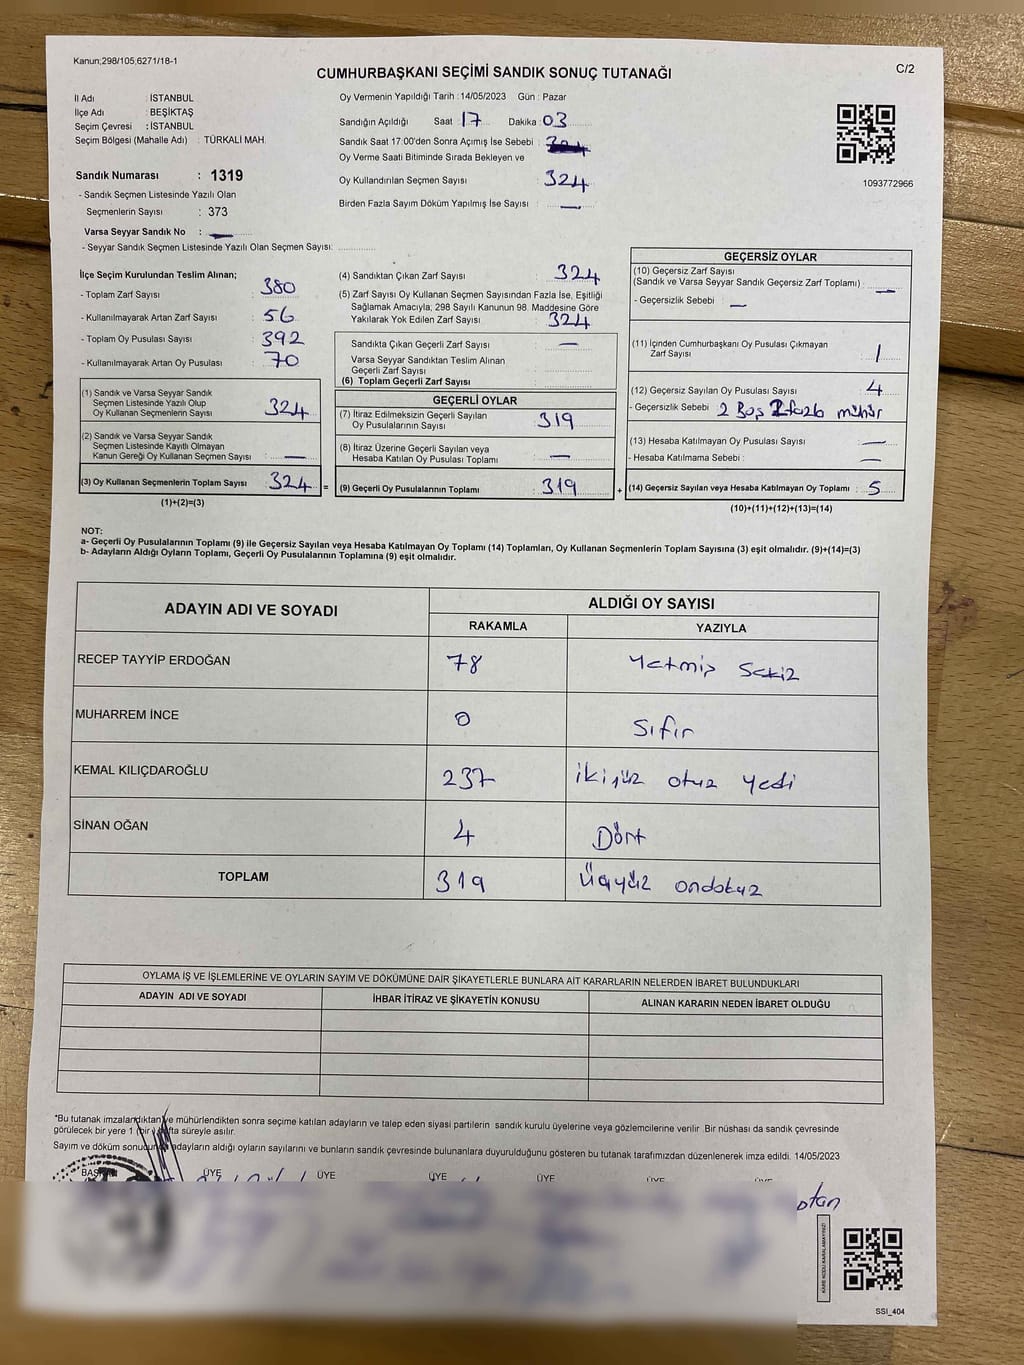 Kanun;298/105,6271/18-1
C/2
CUMHURBAŞKANI SEÇİMİ SANDIK SONUÇ TUTANAĞI
İl Adı : İSTANBUL
İlçe Adı : BEŞİKTAŞ
Seçim Çevresi : İSTANBUL
Seçim Bölgesi (Mahalle Adı) : TÜRKALİ MAH.
Oy Vermenin Yapıldığı Tarih : 14/05/2023 Gün : Pazar
Sandığın Açıldığı Saat 17 Dakika : 03
Sandık Saat 17:00'den Sonra Açımış İse Sebebi :
Oy Verme Saati Bitiminde Sırada Bekleyen ve
Oy Kullandırılan Seçmen Sayısı : 324
Birden Fazla Sayım Döküm Yapılmış İse Sayısı : —
1093772966
Sandık Numarası : 1319
- Sandık Seçmen Listesinde Yazılı Olan
Seçmenlerin Sayısı : 373
Varsa Seyyar Sandık No : —
- Seyyar Sandık Seçmen Listesinde Yazılı Olan Seçmen Sayısı:
İlçe Seçim Kurulundan Teslim Alınan;
- Toplam Zarf Sayısı : 380
- Kullanılmayarak Artan Zarf Sayısı : 56
- Toplam Oy Pusulası Sayısı : 392
- Kullanılmayarak Artan Oy Pusulası : 70
(1) Sandık ve Varsa Seyyar Sandık
Seçmen Listesinde Yazılı Olup
Oy Kullanan Seçmenlerin Sayısı : 324
(2) Sandık ve Varsa Seyyar Sandık
Seçmen Listesinde Kayıtlı Olmayan
Kanun Gereği Oy Kullanan Seçmen Sayısı : —
(3) Oy Kullanan Seçmenlerin Toplam Sayısı : 324 =
(1)+(2)=(3)
(4) Sandıktan Çıkan Zarf Sayısı : 324
(5) Zarf Sayısı Oy Kullanan Seçmen Sayısından Fazla İse, Eşitliği
Sağlamak Amacıyla; 298 Sayılı Kanunun 98. Maddesine Göre
Yakılarak Yok Edilen Zarf Sayısı : 324
Sandıkta Çıkan Geçerli Zarf Sayısı : —
Varsa Seyyar Sandıktan Teslim Alınan
Geçerli Zarf Sayısı :
(6) Toplam Geçerli Zarf Sayısı :
GEÇERLİ OYLAR
(7) İtiraz Edilmeksizin Geçerli Sayılan
Oy Pusulalarının Sayısı : 319
(8) İtiraz Üzerine Geçerli Sayılan veya
Hesaba Katılan Oy Pusulası Toplamı : —
(9) Geçerli Oy Pusulalarının Toplamı : 319 +
GEÇERSİZ OYLAR
(10) Geçersiz Zarf Sayısı
(Sandık ve Varsa Seyyar Sandık Geçersiz Zarf Toplamı) : —
- Geçersizlik Sebebi : —
(11) İçinden Cumhurbaşkanı Oy Pusulası Çıkmayan
Zarf Sayısı : 1
(12) Geçersiz Sayılan Oy Pusulası Sayısı : 4
- Geçersizlik Sebebi : 2 Boş 2 fazla mühür
(13) Hesaba Katılmayan Oy Pusulası Sayısı : —
- Hesaba Katılmama Sebebi : —
(14) Geçersiz Sayılan veya Hesaba Katılmayan Oy Toplamı : 5
(10)+(11)+(12)+(13)=(14)
NOT:
a- Geçerli Oy Pusulalarının Toplamı (9) ile Geçersiz Sayılan veya Hesaba Katılmayan Oy Toplamı (14) Toplamları, Oy Kullanan Seçmenlerin Toplam Sayısına (3) eşit olmalıdır. (9)+(14)=(3)
b- Adayların Aldığı Oyların Toplamı, Geçerli Oy Pusulalarının Toplamına (9) eşit olmalıdır.
ADAYIN ADI VE SOYADI
ALDIĞI OY SAYISI
RAKAMLA YAZIYLA
RECEP TAYYİP ERDOĞAN 78 Yetmiş Sekiz
MUHARREM İNCE 0 Sıfır
KEMAL KILIÇDAROĞLU 237 ikiyüz otuz yedi
SİNAN OĞAN 4 Dört
TOPLAM 319 Üçyüz ondokuz
OYLAMA İŞ VE İŞLEMLERİNE VE OYLARIN SAYIM VE DÖKÜMÜNE DAİR ŞİKAYETLERLE BUNLARA AİT KARARLARIN NELERDEN İBARET BULUNDUKLARI
ADAYIN ADI VE SOYADI İHBAR İTİRAZ VE ŞİKAYETİN KONUSU ALINAN KARARIN NEDEN İBARET OLDUĞU
*Bu tutanak imzalandıktan ve mühürlendikten sonra seçime katılan adayların ve talep eden siyasi partilerin sandık kurulu üyelerine veya gözlemcilerine verilir .Bir nüshası da sandık çevresinde
görülecek bir yere 1 (bir) hafta süreyle asılır.
Sayım ve döküm sonucunda adayların aldığı oyların sayılarını ve bunların sandık çevresinde bulunanlara duyurulduğunu gösteren bu tutanak tarafımızdan düzenlenerek imza edildi. 14/05/2023
BAŞKAN ÜYE ÜYE ÜYE ÜYE ÜYE ÜYE
KARE KODU KARALAMAYINIZ!
SSI_404